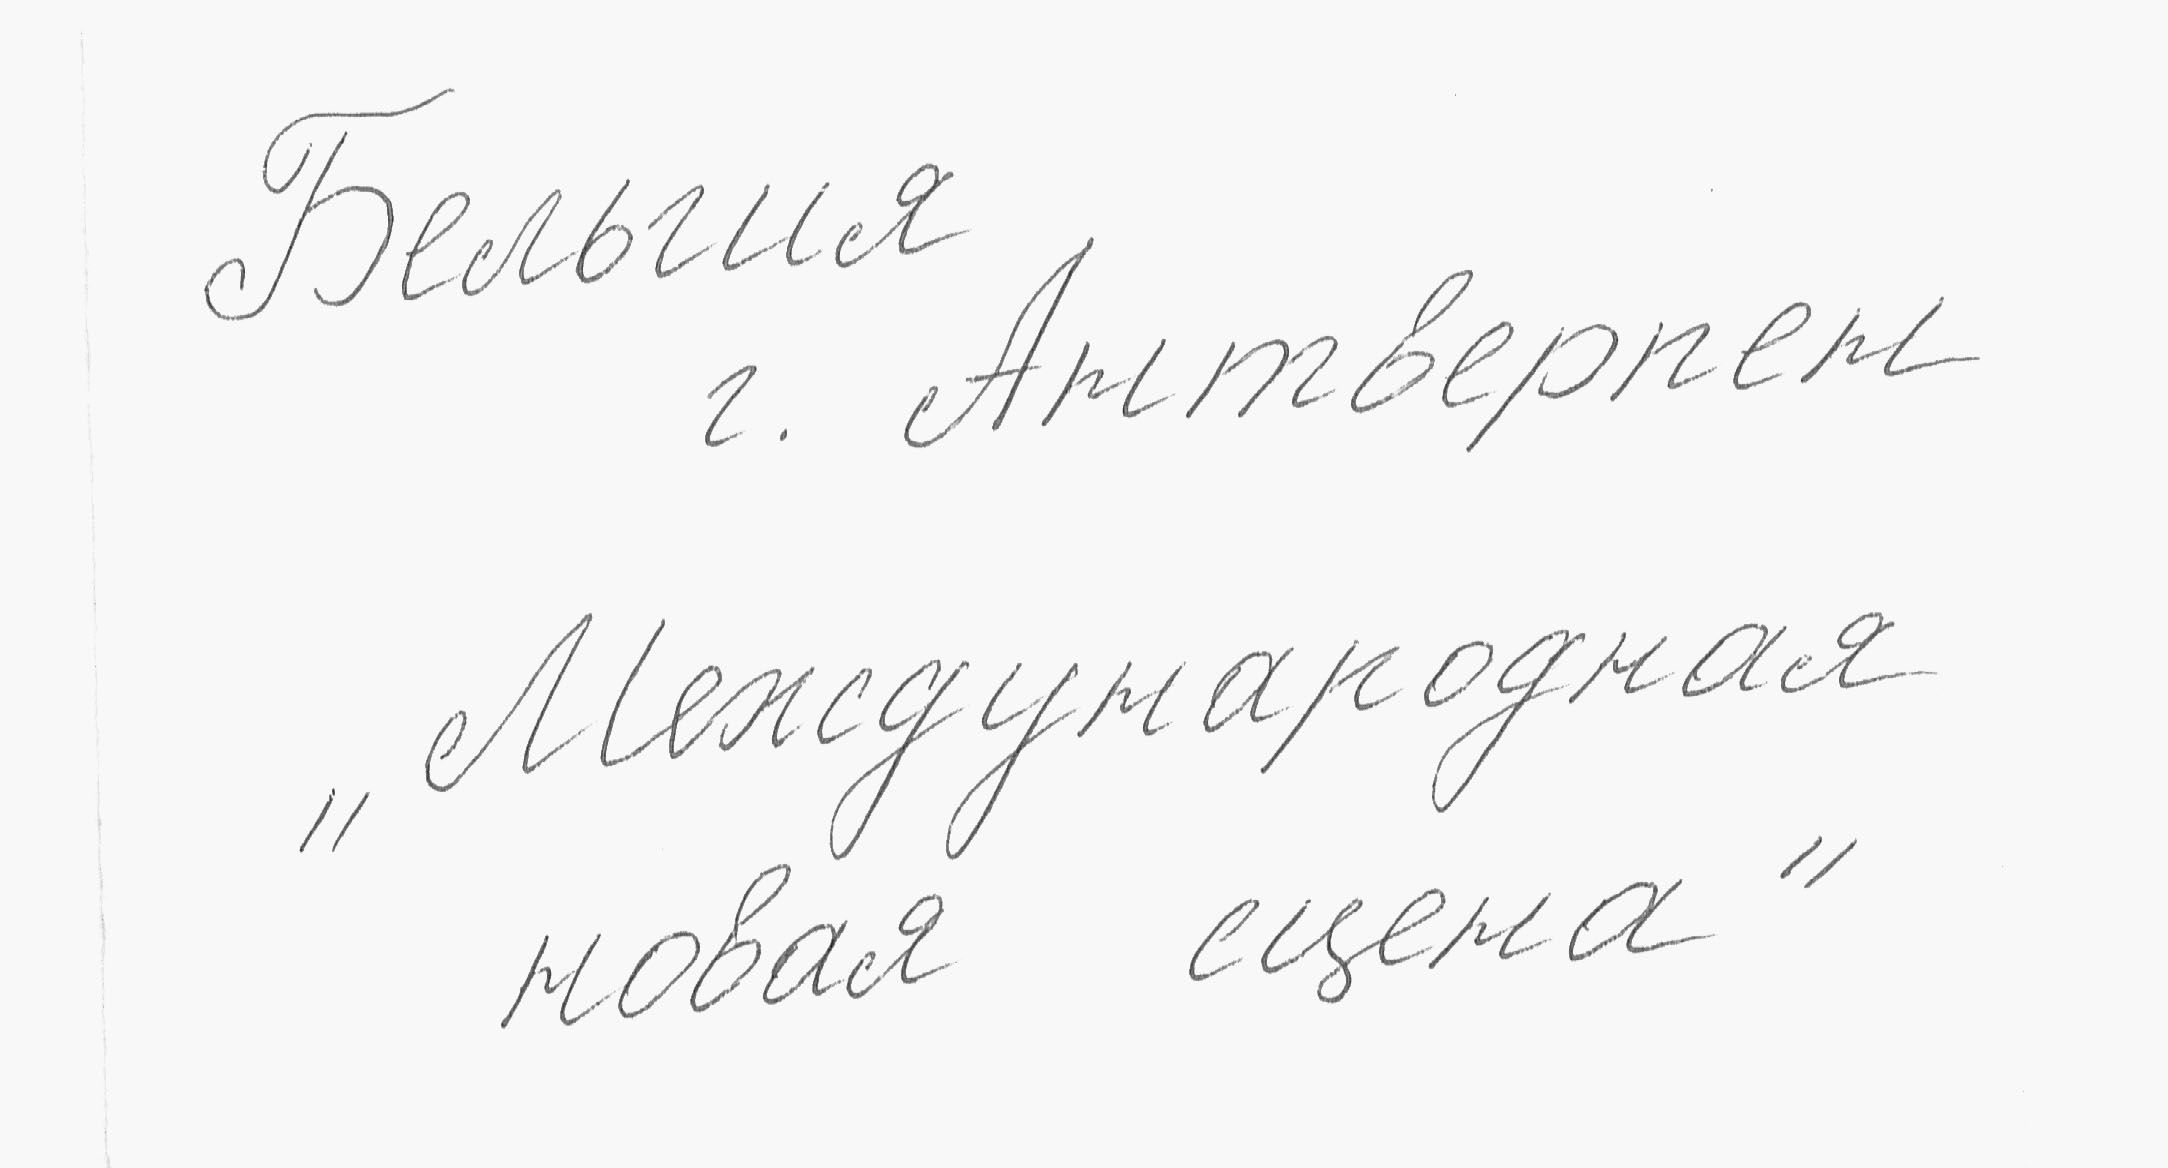 Бельгия
г. Антверпен
„Международная
новая сцена"